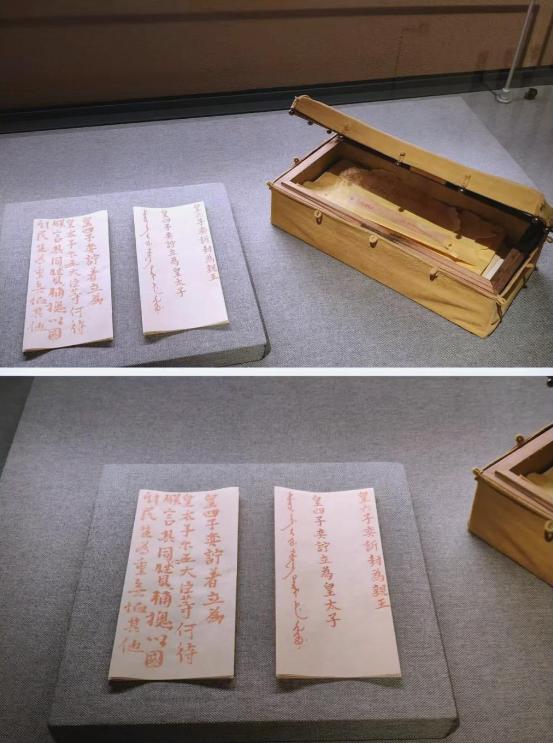 皇六子奕訢封為親王
皇四子奕詝立為皇太子
皇四子奕詝著立為
皇太子尔王大臣等何待
朕言其同心贊輔總以國
計民生為重無恤其他
皇六子奕訢封為親王
皇四子奕詝立為皇太子
皇四子奕詝著立為
皇太子尔王大臣等何待
朕言其同心贊輔總以國
計民生為重無恤其他